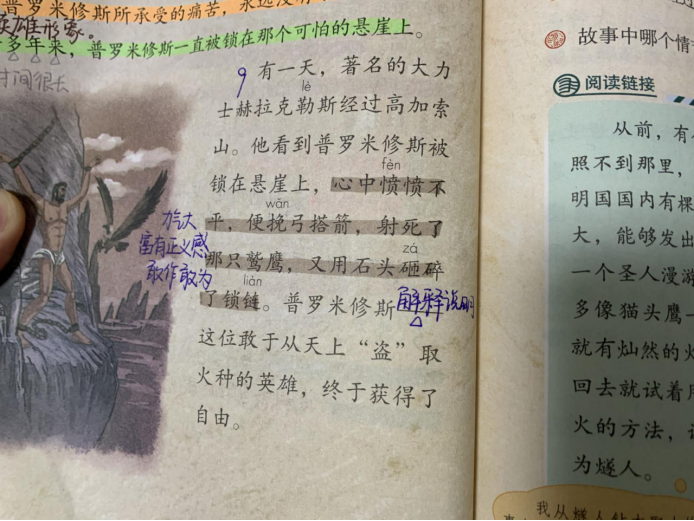 普罗米修斯所承受的痛苦，永远没
英雄形象。
多年来，普罗米修斯一直被锁在那个可怕的悬崖上。
时间很长
9
有一天，著名的大力
lè
士赫拉克勒斯经过高加索
山。他看到普罗米修斯被
fèn
锁在悬崖上，心中愤愤不
wǎn
平，便挽弓搭箭，射死了
zá
那只鹫鹰，又用石头砸碎
liàn
了锁链。普罗米修斯
解释说明
这位敢于从天上“盗”取
火种的英雄，终于获得了
自由。
力气大
富有正义感
敢作敢为
故事中哪个情
阅读链接
从前，有
照不到那里，
明国国内有棵
大，能够发出
一个圣人漫游
多像猫头鹰一
就有灿然的火
回去就试着用
火的方法，
为燧人。
我从燧人钻木取